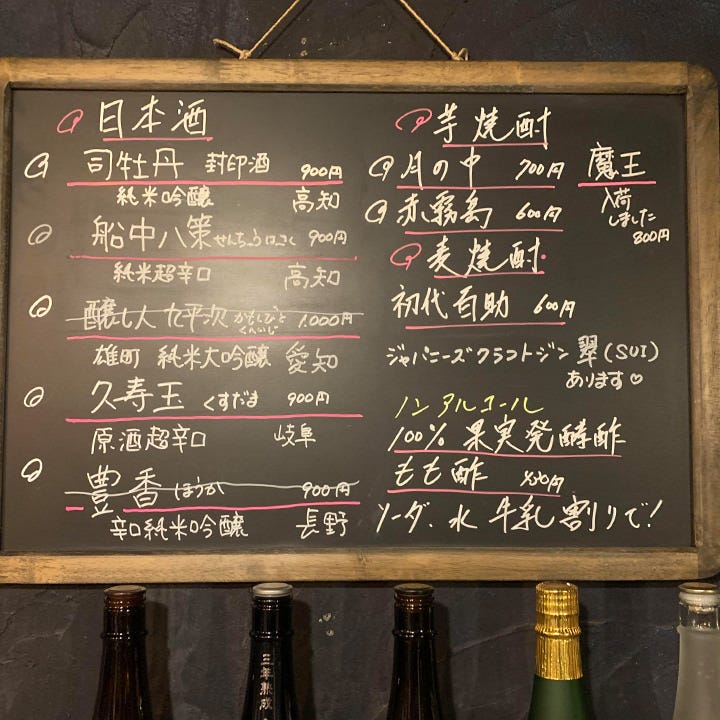 日本酒
司牡丹 封印酒 900円
純米吟醸 高知
船中八策 せんちゅうはっさく 900円
純米超辛口 高知
醸し人九平次 かもしびと くへいじ 1.000円
雄町 純米大吟醸 愛知
久寿玉 くすだま 900円
原酒超辛口 岐阜
豊香 ほうか 900円
辛口純米吟醸 長野
芋焼酎
月の中 700円
赤霧島 600円
魔王
入荷
しました
800円
麦焼酎
初代百助 600円
ジャパニーズクラフトジン 翠(SUI)
あります♡
ノンアルコール
100% 果実発酵酢
もも酢 450円
ソーダ、水 牛乳 割りで!
三年熟成